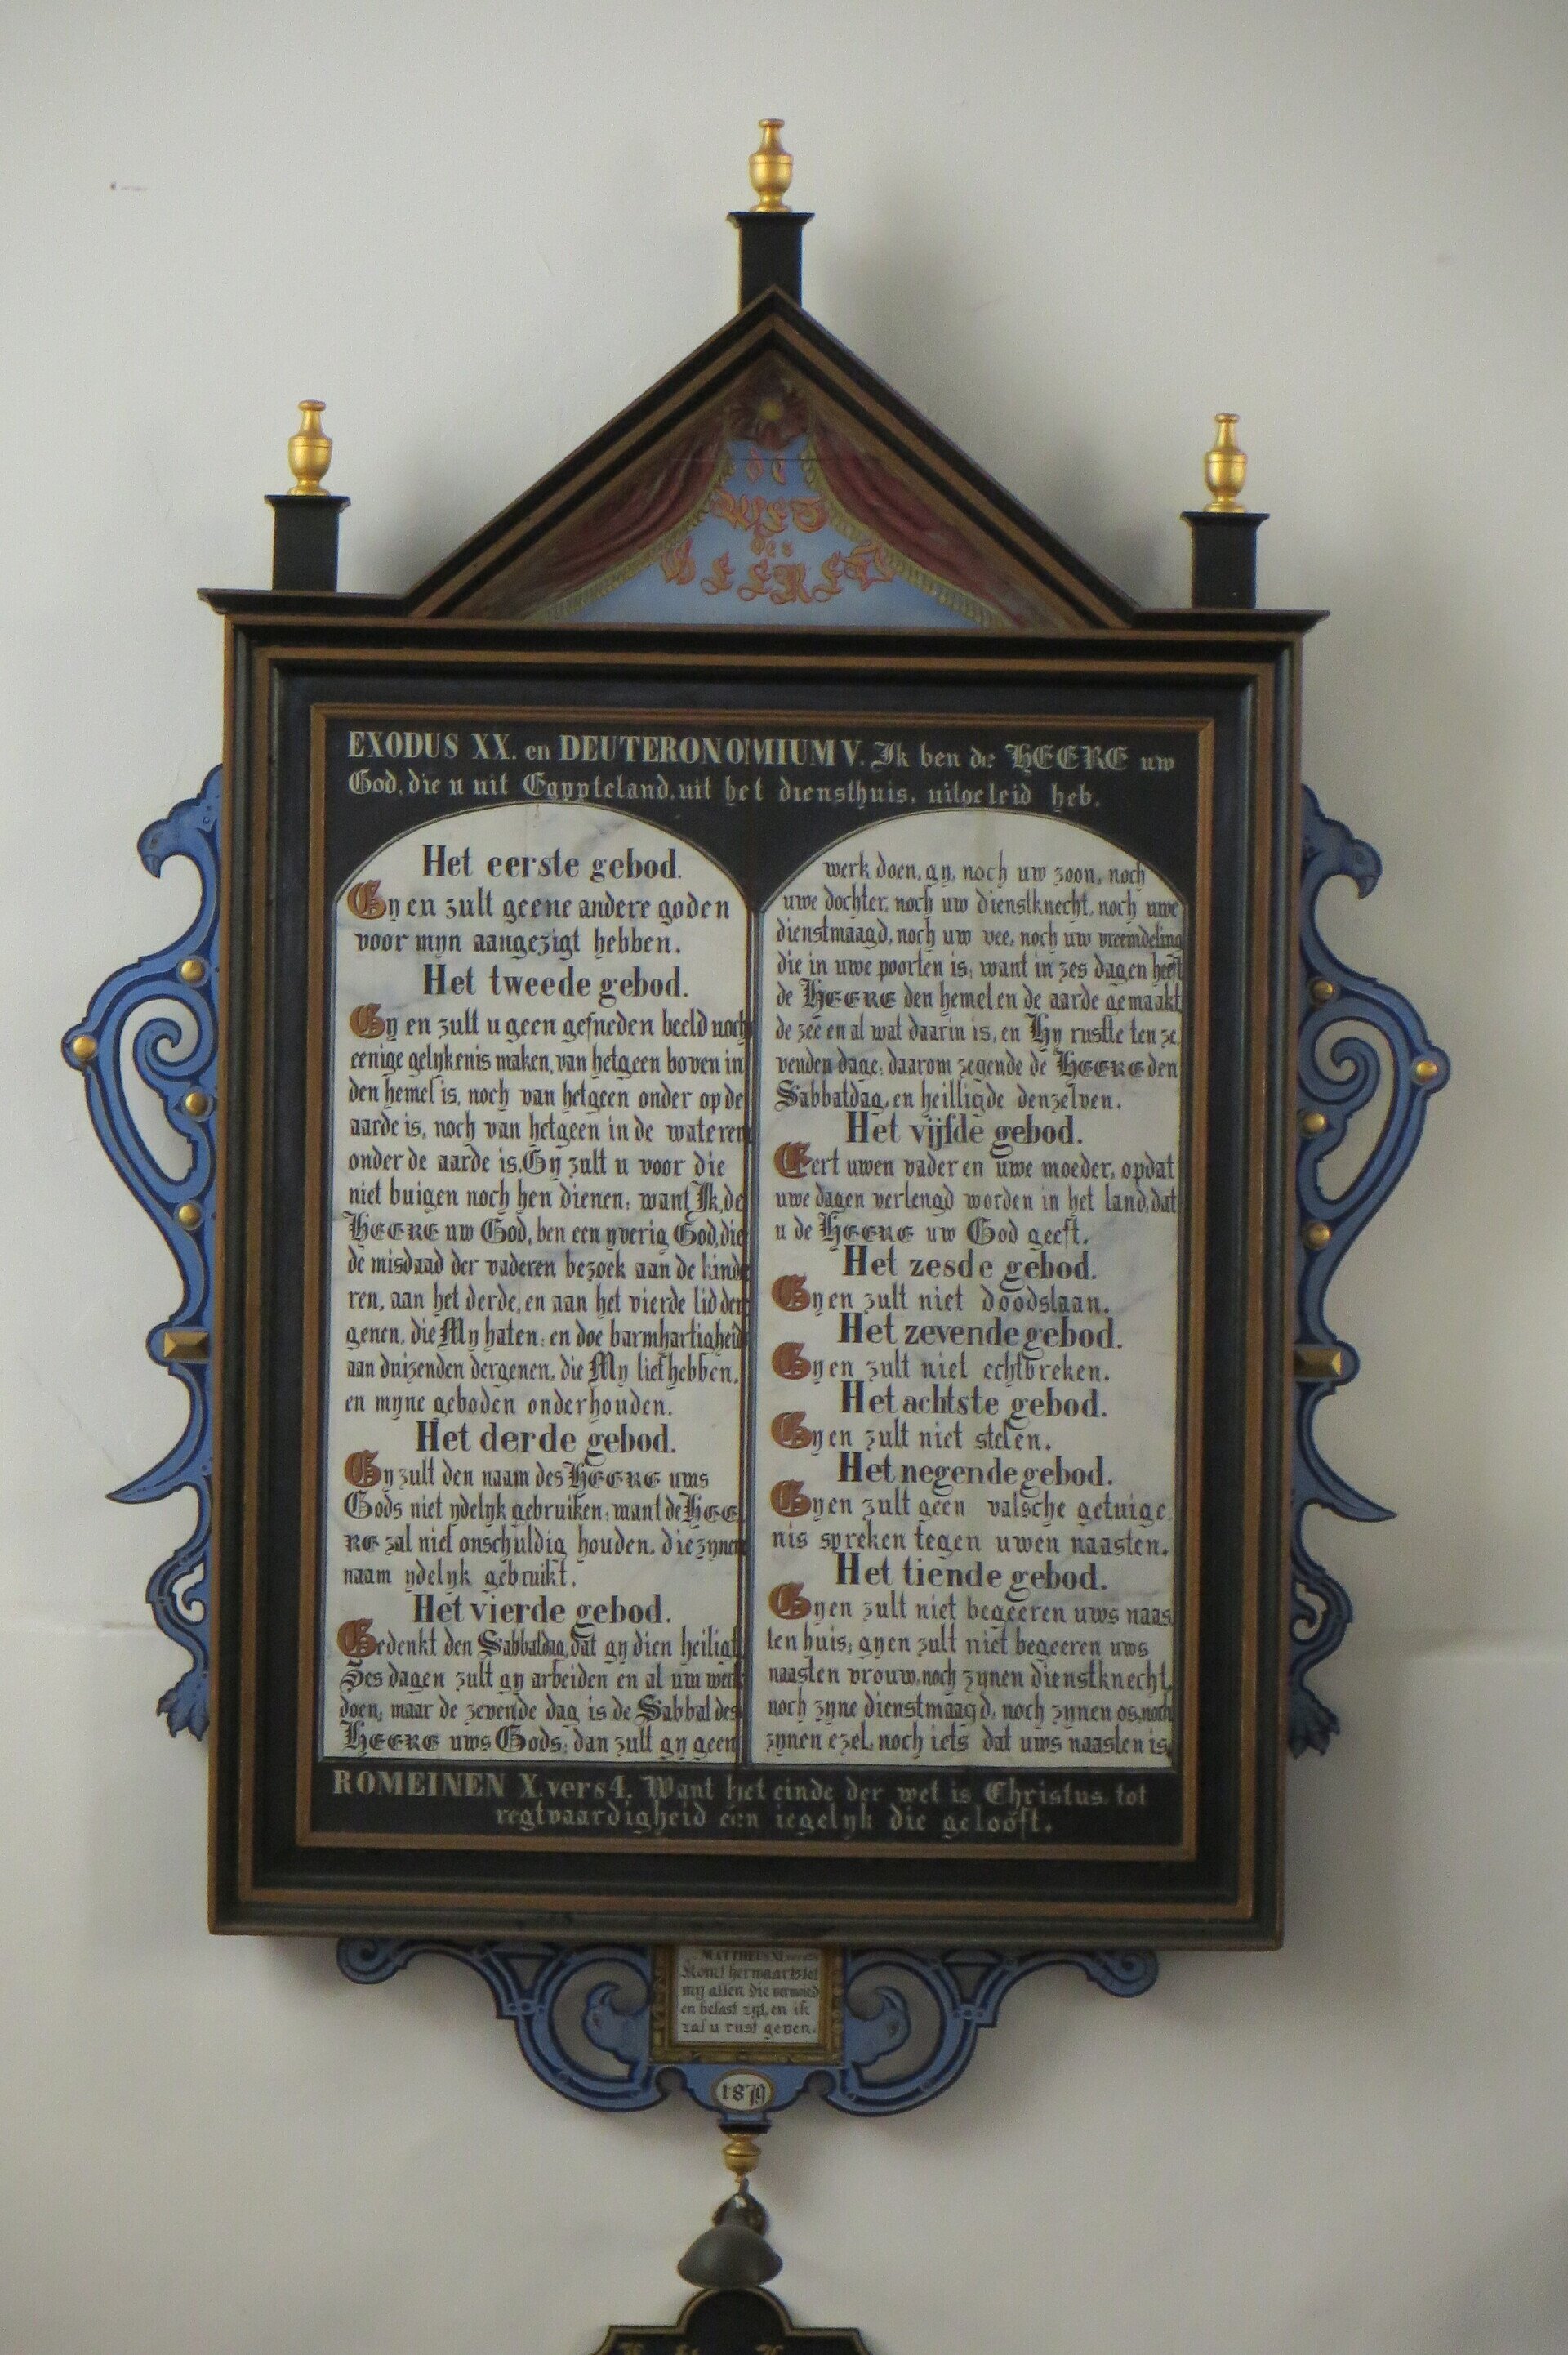 de
WET
des
HEEREN
EXODUS XX. en DEUTERONOMIUM V. Ik ben de HEERE uw
God, die u uit Egypteland, uit het diensthuis, uitgeleid heb.
Het eerste gebod.
Gy en zult geene andere goden
voor myn aangezigt hebben.
Het tweede gebod.
Gy en zult u geen gesneden beeld noch
eenige gelykenis maken, van hetgeen boven in
den hemel is, noch van hetgeen onder op de
aarde is, noch van hetgeen in de wateren
onder de aarde is. Gy zult u voor die
niet buigen noch hen dienen; want Ik, de
HEERE uw God, ben een yverig God, die
de misdaad der vaderen bezoek aan de kinde
ren, aan het derde, en aan het vierde lid der
genen, die My haten: en doe barmhartigheid
aan duizenden dergenen, die My liefhebben,
en myne geboden onderhouden.
Het derde gebod.
Gy zult den naam des HEERE uws
Gods niet ydelyk gebruiken; want de HEE
RE zal niet onschuldig houden, die zynen
naam ydelyk gebruikt.
Het vierde gebod.
Gedenkt den Sabbatdag, dat gy dien heiligt
Zes dagen zult gy arbeiden en al uw werk
doen; maar de zevende dag is de Sabbat des
HEERE uws Gods; dan zult gy geen
werk doen, gy, noch uw zoon, noch
uwe dochter, noch uw dienstknecht, noch uwe
dienstmaagd, noch uw vee, noch uw vreemdeling
die in uwe poorten is; want in zes dagen heeft
de HEERE den hemel en de aarde gemaakt
de zee en al wat daarin is, en Hy rustte ten ze
venden dage; daarom zegende de HEERE den
Sabbatdag, en heiligde denzelven.
Het vijfde gebod.
Eert uwen vader en uwe moeder, opdat
uwe dagen verlengd worden in het land, dat
u de HEERE uw God geeft.
Het zesde gebod.
Gy en zult niet doodslaan.
Het zevende gebod.
Gy en zult niet echtbreken.
Het achtste gebod.
Gy en zult niet stelen.
Het negende gebod.
Gy en zult geen valsche getuige
nis spreken tegen uwen naasten.
Het tiende gebod.
Gy en zult niet begeeren uws naas
ten huis; gy en zult niet begeeren uws
naasten vrouw, noch zynen dienstknecht,
noch zyne dienstmaagd, noch zynen os, noch
zynen ezel, noch iets dat uws naasten is.
ROMEINEN X. vers 4. Want het einde der wet is Christus, tot
regtvaardigheid een iegelyk die gelooft.
MATTHEUS XI
Komt herwaarts tot
my allen die vermoeid
en belast zyt, en ik
zal u rust geven.
1879